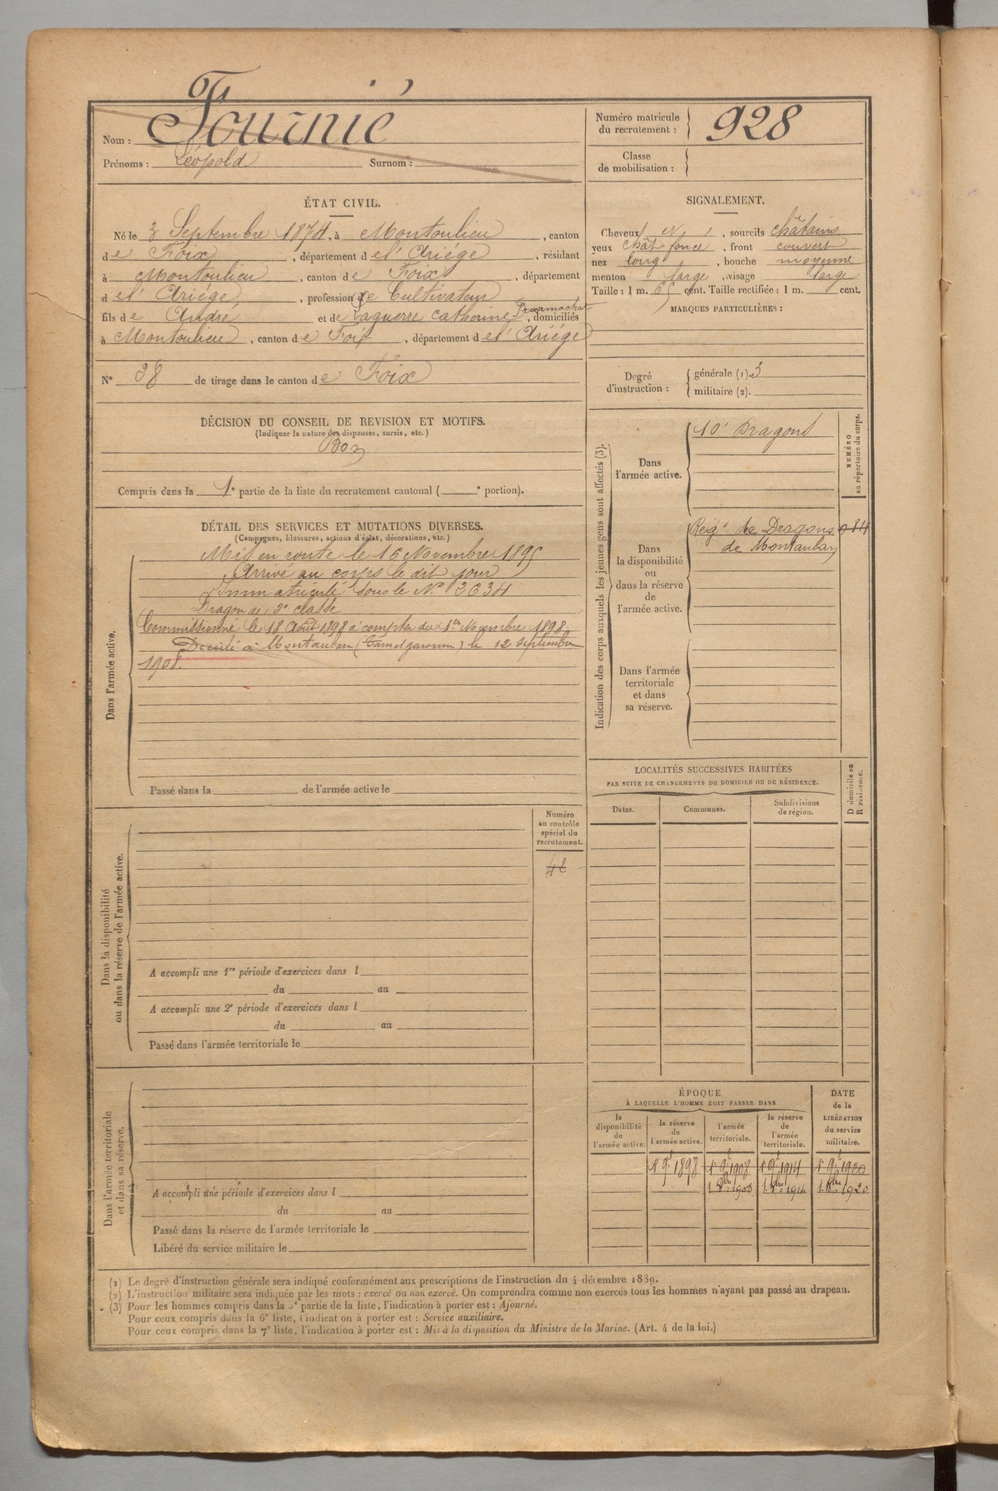 Nom : Fournié
Prénoms : Léopold Surnom :
Numéro matricule du recrutement : 928
Classe de mobilisation :
ÉTAT CIVIL.
Né le 3 Septembre 1874, à Montoulieu, canton
de Foix, département de l'Ariége, résidant
à Montoulieu, canton de Foix, département
de l'Ariége, profession de Cultivateur
fils de André et de Laguerre Catherine, domiciliés
à Montoulieu, canton de Foix, département de l'Ariége
N° 38 de tirage dans le canton de Foix
SIGNALEMENT.
Cheveux, sourcils châtains
yeux chât foncé, front couvert
nez long, bouche moyenne
menton large, visage large
Taille : 1 m. 65 cent. Taille rectifiée : 1 m. cent.
MARQUES PARTICULIÈRES :
Degré d'instruction : générale (1) 3
militaire (2).
DÉCISION DU CONSEIL DE REVISION ET MOTIFS.
(Indiquer la nature des dispenses, sursis, etc.)
Bon
Compris dans la 1e partie de la liste du recrutement cantonal ( e portion).
DÉTAIL DES SERVICES ET MUTATIONS DIVERSES.
(Campagnes, blessures, actions d'éclat, décorations, etc.)
Dans l'armée active.
Mis en route le 16 Novembre 1895
Arrivé au corps le dit jour
Immatriculé sous le N° 3634
Dragon de 2e classe
Commissionné le 18 Août 1898 à compter du 1er Novembre 1898
Décédé à Montauban (Tarn et garonne) le 12 septembre
1908.
Passé dans la de l'armée active le
Indication des corps auxquels les jeunes gens sont affectés (3).
NUMÉRO au répertoire du corps.
Dans l'armée active.
10e Dragons
Dans la disponibilité ou dans la réserve de l'armée active.
Régt de Dragons
de Montauban
Dans l'armée territoriale et dans sa réserve.
LOCALITÉS SUCCESSIVES HABITÉES
PAR SUITE DE CHANGEMENTS DE DOMICILE OU DE RÉSIDENCE.
Dates. Communes. Subdivisions de région. D domicile ou R résidence.
Dans la disponibilité ou dans la réserve de l'armée active.
Numéro au contrôle spécial du recrutement.
42
A accompli une 1re période d'exercices dans l
du au
A accompli une 2e période d'exercices dans l
du au
Passé dans l'armée territoriale le
Dans l'armée territoriale et dans sa réserve.
A accompli une période d'exercices dans l
du au
Passé dans la réserve de l'armée territoriale le
Libéré du service militaire le
ÉPOQUE
À LAQUELLE L'HOMME DOIT PASSER DANS
la disponibilité de l'armée active. la réserve de l'armée active. l'armée territoriale. la réserve de l'armée territoriale. DATE de la LIBÉRATION du service militaire.
1er 9bre 1898 1er 9bre 1908 1er 9bre 1914 1er 9bre 1920
1 8bre 1908 1 8bre 1914 1 8bre 1920
(1) Le degré d'instruction générale sera indiqué conformément aux prescriptions de l'instruction du 4 décembre 1889.
(2) L'instruction militaire sera indiquée par les mots : exercé ou non exercé. On comprendra comme non exercés tous les hommes n'ayant pas passé au drapeau.
(3) Pour les hommes compris dans la 5e partie de la liste, l'indication à porter est : Ajourné.
Pour ceux compris dans la 6e liste, l'indication à porter est : Service auxiliaire.
Pour ceux compris dans la 7e liste, l'indication à porter est : Mis à la disposition du Ministre de la Marine. (Art. 4 de la loi.)